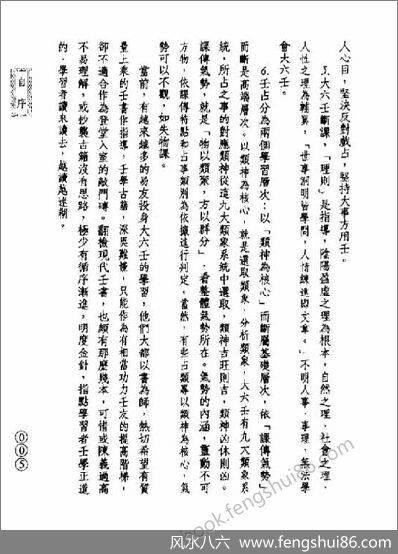 人心目,堅決反對戲占,堅持大事方用壬。
5.大六壬斷課,「理則」是指導,陰陽盈虛之理為根本,自然之理、社會之理、
人性之理為輔翼,「世事洞明皆學問,人情練達即文章。」不明人事、事理,無法學
會大六壬。
6.壬占分為兩個學習層次:以「類神為核心」而斷屬基礎層次,依「課傳氣勢」
而斷是高端層次。以類神為核心,就是選取類象、分析類象,大六壬有九大類象系
統,所占之事的對應類神從這九大類象系統中選取,類神吉旺則吉,類神凶休則凶。
課傳氣勢,就是「物以類聚,方以群分」,看整體氣勢所在。氣勢的內涵,靈動不可
方物,依課傳特點和占事類別為依據進行判定。當然,有些占類專以類神為核心,氣
勢可以不觀,如失物課。
當前,有越來越多的易友投身大六壬的學習,他們大都以書為師,熱切希望有質
量上乘的壬書作指導,壬學古籍,深奧難懂,只能作為有相當功力壬友的提高階梯,
卻不適合作為登堂入室的敲門磚。翻檢現代壬書,也頗有那麼幾本,可惜或陳義過高
不易理解,或抄襲古籍沒有思路,極少有循序漸進,明度金針,指點學習者壬學正道
的,學習者讀來讀去,越讀越迷糊。
自序
005
book.fengshui86.com
风水八六 www.fengshui86.com